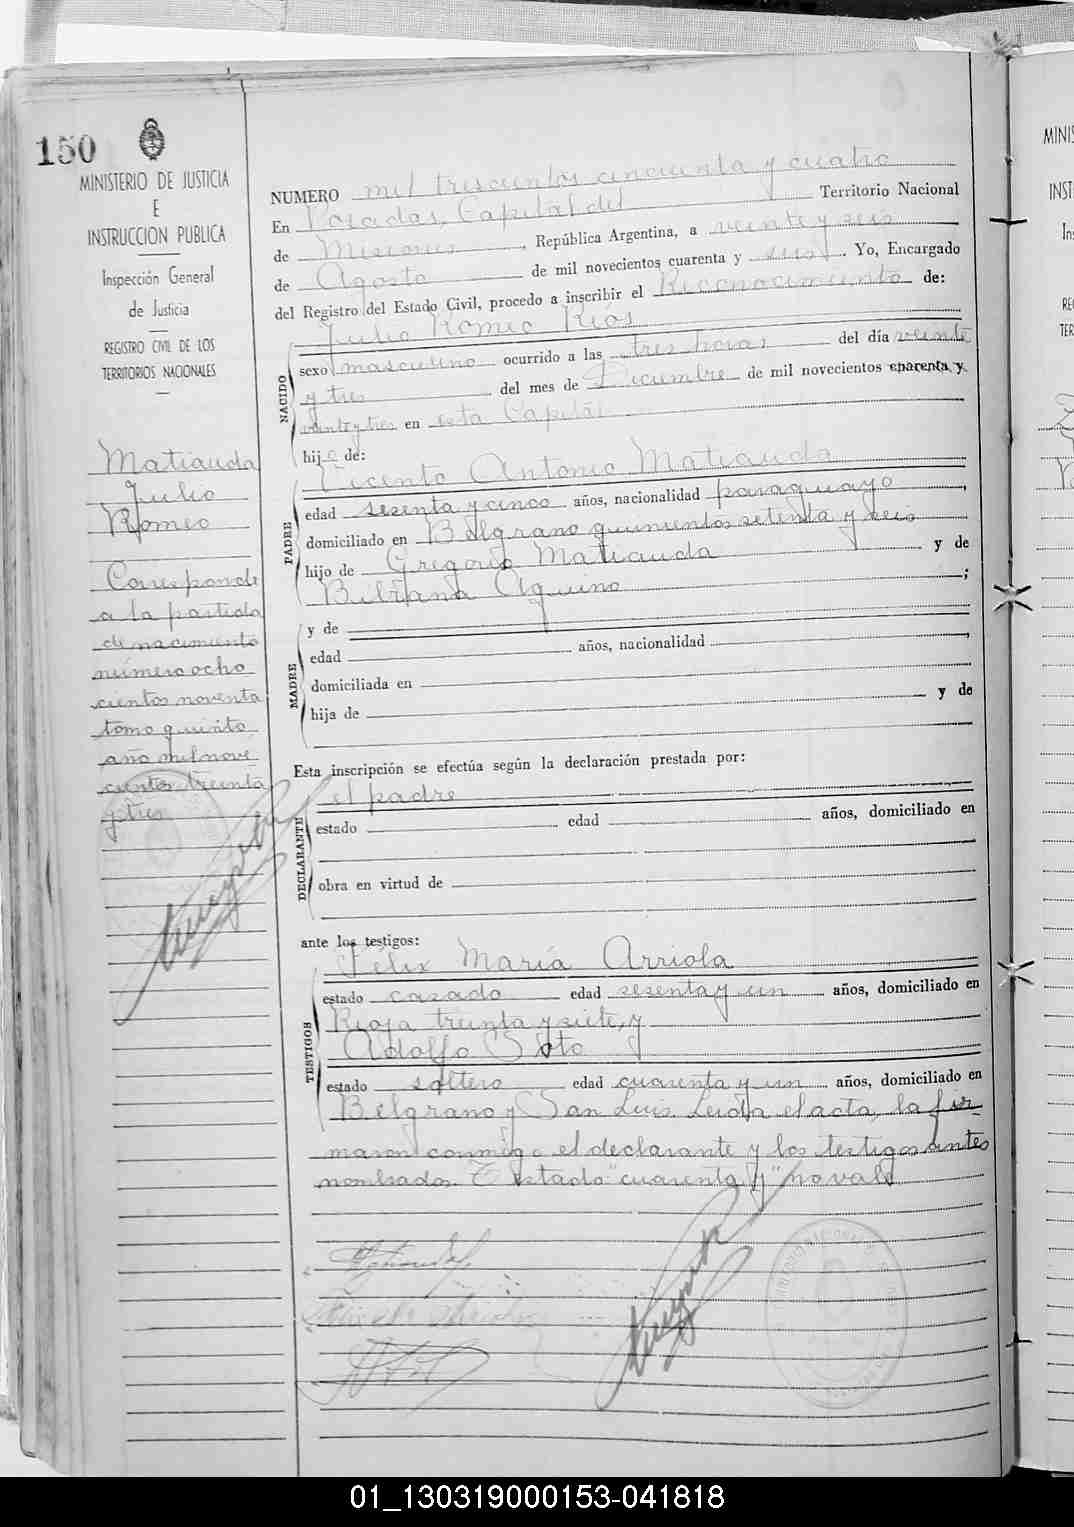 150
MINISTERIO DE JUSTICIA
E
INSTRUCCION PUBLICA
Inspección General
de Justicia
REGISTRO CIVIL DE LOS
TERRITORIOS NACIONALES
Matiauda
Julio
Romeo
Corresponde
a la partida
de nacimiento
número ocho
cientos noventa
tomo quinto
año mil nove
cientos treinta
y tres
NUMERO mil trescientos cincuenta y cuatro
En Posadas, Capital del Territorio Nacional
de Misiones, República Argentina, a veinte y seis
de Agosto de mil novecientos cuarenta y seis. Yo, Encargado
del Registro del Estado Civil, procedo a inscribir el Reconocimiento de:
Julio Romeo Ríos
NACIDO
sexo masculino ocurrido a las tres horas del día veinte
y tres del mes de Diciembre de mil novecientos cuarenta y
veinte y tres en esta Capital
hijo de:
PADRE
Vicente Antonio Matiauda
edad sesenta y cinco años, nacionalidad paraguayo,
domiciliado en Belgrano quinientos setenta y seis
hijo de Gregorio Matiauda y de
Bibiana Aquino;
MADRE
y de
edad años, nacionalidad,
domiciliada en
hija de y de
Esta inscripción se efectúa según la declaración prestada por:
el padre
DECLARANTE
estado edad años, domiciliado en
obra en virtud de
ante los testigos:
TESTIGOS
Félix María Arriola
estado casado edad sesenta y un años, domiciliado en
Rioja treinta y siete, y
Adolfo Soto
estado soltero edad cuarenta y un años, domiciliado en
Belgrano y San Luis. Leída el acta, la fir-
maron conmigo el declarante y los testigos antes
nombrados. Testado "cuarenta y" no vale
MINIS
INST
In
RE
TER
01_130319000153-041818